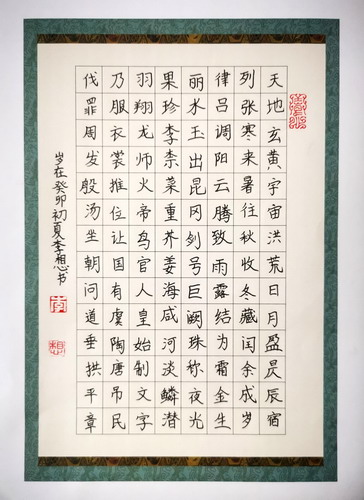 天地玄黄宇宙洪荒日月盈昃辰宿
列张寒来暑往秋收冬藏闰余成岁
律吕调阳云腾致雨露结为霜金生
丽水玉出昆冈剑号巨阙珠称夜光
果珍李柰菜重芥姜海咸河淡鳞潜
羽翔龙师火帝鸟官人皇始制文字
乃服衣裳推位让国有虞陶唐吊民
伐罪周发殷汤坐朝问道垂拱平章
岁在癸卯初夏李想书
李
想